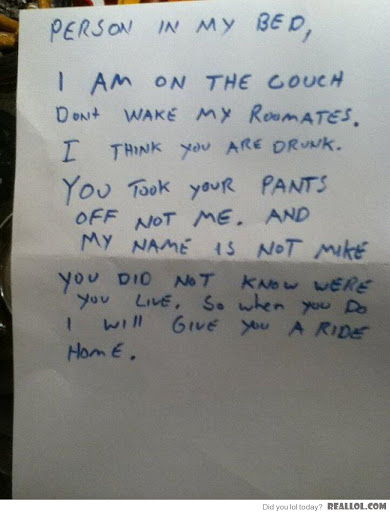 PERSON IN MY BED,
I AM ON THE COUCH
DONt WAKE MY ROOMATES.
I THINK you ARE DRUNK.
YOU TOOK YOUR PANTS
OFF NOT ME. AND
MY NAME IS NOT MIKE
YOU DID NOT KNOW WERE
YOU LIVE. So when you Do
I will GIVE you A RIDE
HOME.
Did you lol today? REALLOL.COM